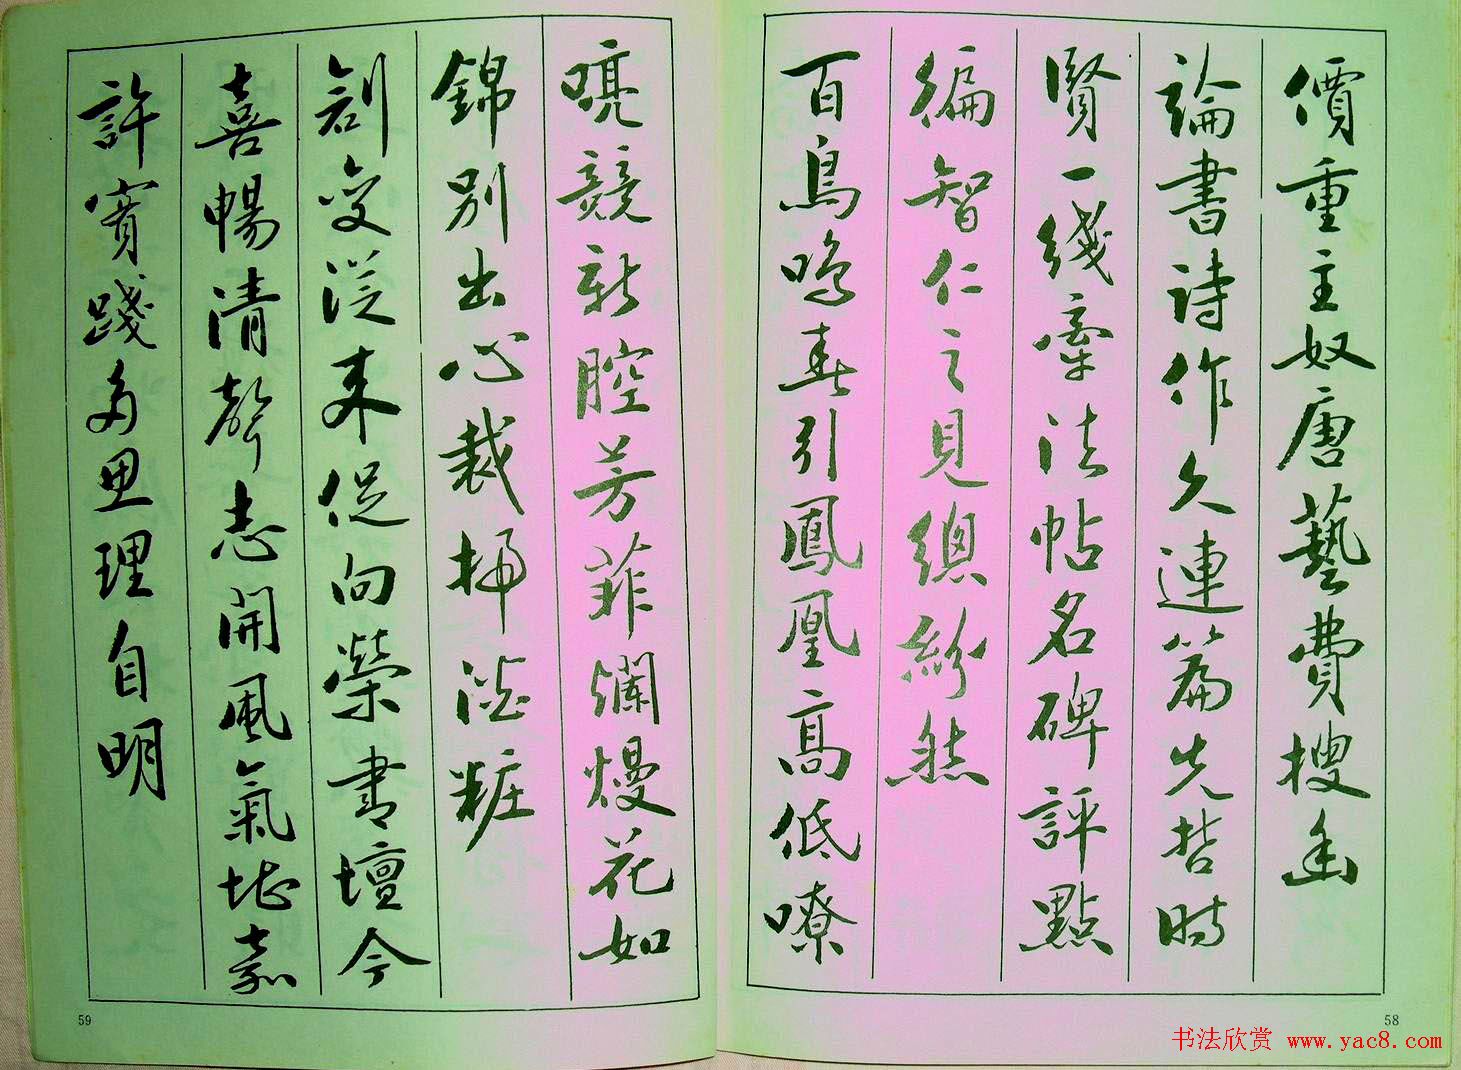 價重主奴唐藝費搜幽
論書詩作久連篇先哲時
賢一綫牽法帖名碑評點
徧智仁之見總紛然
百鳥鳴春引鳳凰高低嘹
喨競新腔芳菲爛熳花如
錦別出心裁掃澹粧
創變從來促向榮書壇今
喜暢清聲志開風氣堪嘉
許實踐多思理自明
59
58
书法欣赏 www.yac8.com